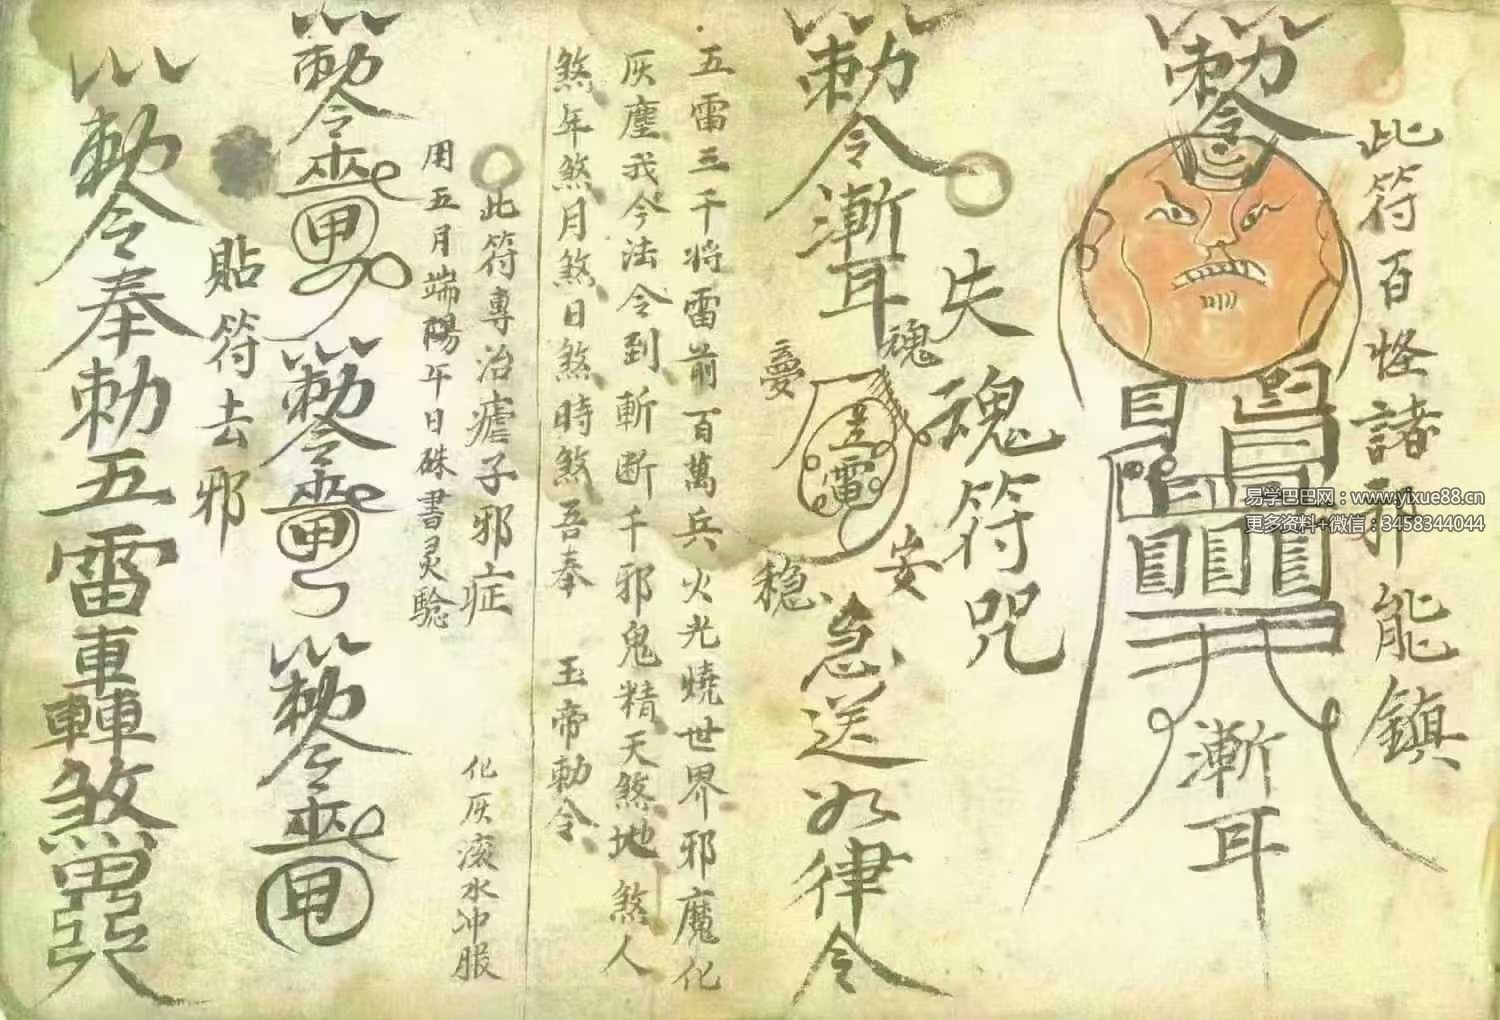 此符百怪諸邪能鎮
勅令
漸耳
失魂符咒
勅令漸耳
魂
憂
五雷
安
稳
急送如律令
五雷三千将雷前百萬兵火光燒世界邪魔化
灰塵我今法令到斬断千邪鬼精天煞地煞人
煞年煞月煞日煞時煞吾奉 玉帝勅令
此符專治瘧子邪症
用五月端陽午日硃書灵驗
化灰滚水冲服
勅令
勅令
勅令
貼符去邪
勅令奉勅五雷
煞
易学巴巴网：www.yixue88.cn
更多资料+微信：3458344044